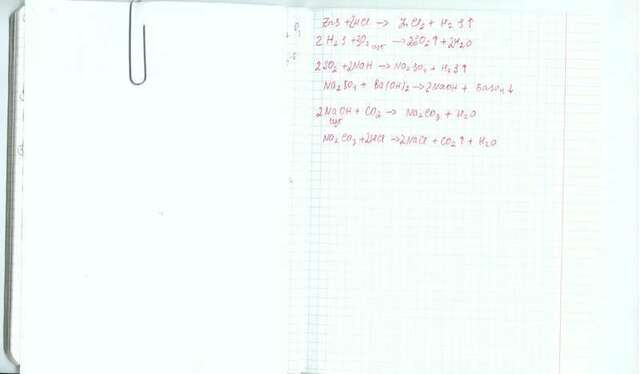 ZnS + 2HCl → ZnCl₂ + H₂S↑
2H₂S + 3O₂ → 2SO₂↑ + 2H₂O
2SO₂ + 2NaH → Na₂SO₄ + H₂S↑
Na₂SO₄ + Ba(OH)₂ → 2NaOH + BaSO₄↓
2NaOH + CO₂ → Na₂CO₃ + H₂O
Na₂CO₃ + 2HCl → 2NaCl + CO₂↑ + H₂O